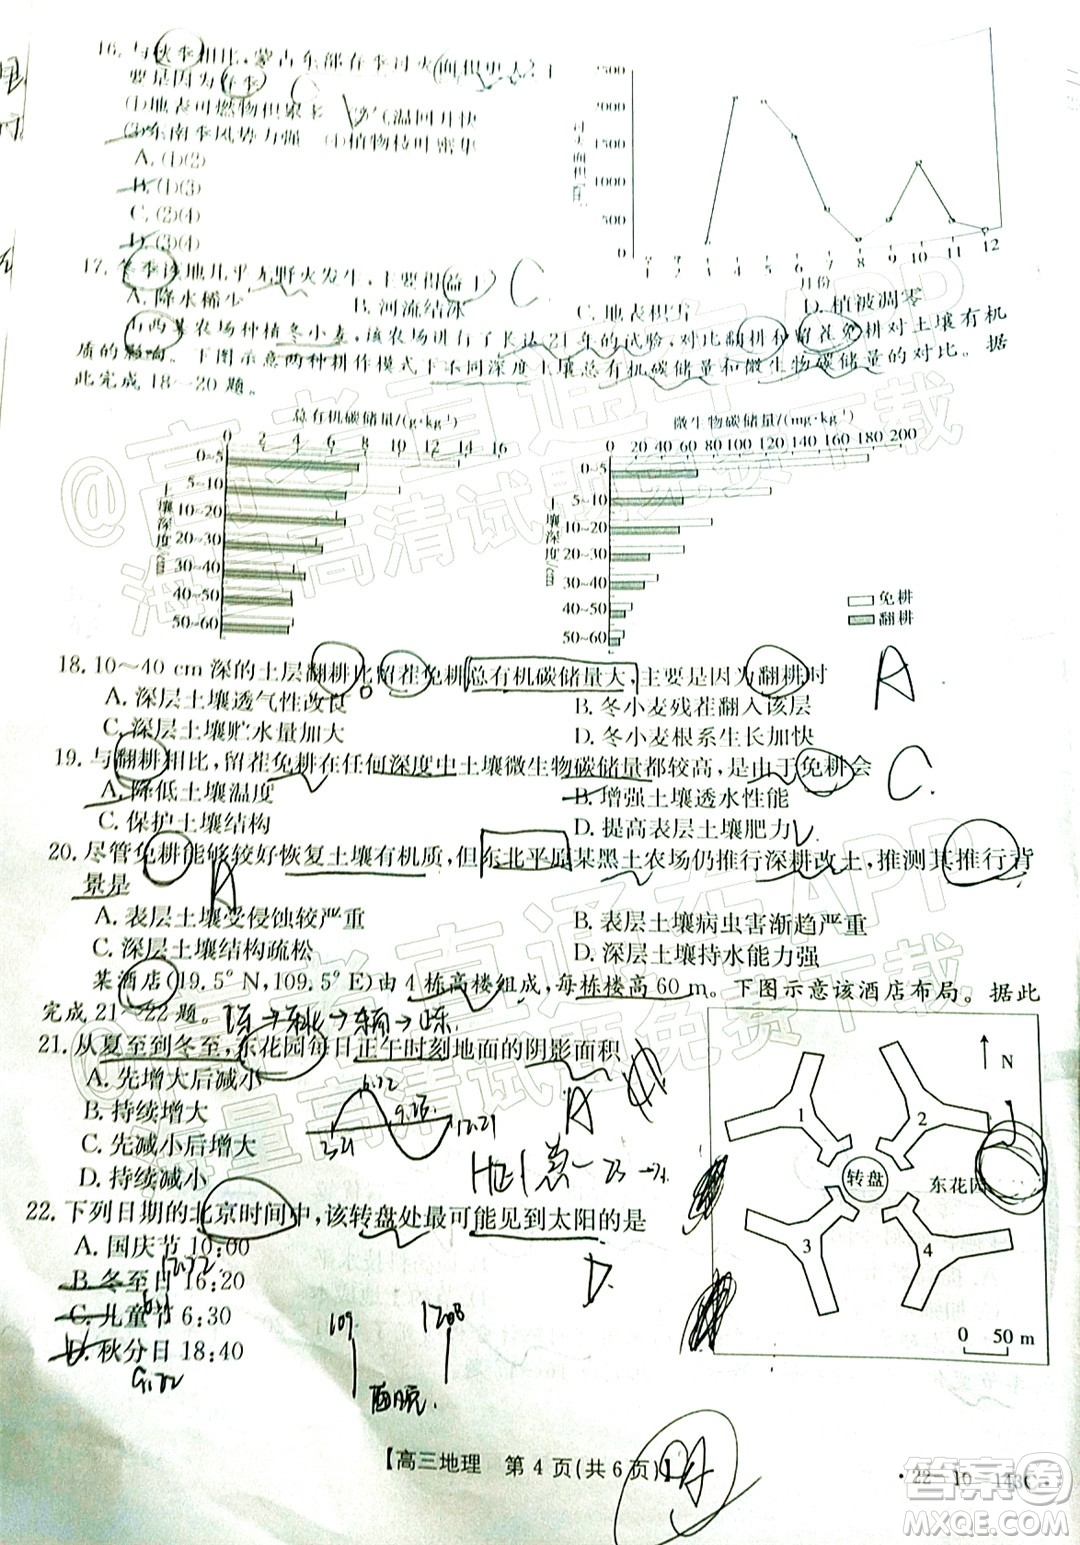 16. 与秋季相比，蒙古东部在季过火面积更大，主
要是因为春季
(1)地表可燃物积累多 (2)气温回升快
(3)东南季风势力强 (4)植物枝叶密集
A. (1)(2)
B. (1)(3)
C. (2)(4)
D. (3)(4)
过火面积
2500
2000
1500
1000
500
0
1 2 3 4 5 6 7 8 9 10 11 12
月份
17. 冬季该地几乎无野火发生，主要得益于 C
A. 降水稀少 B. 河流结冰 C. 地表积雪 D. 植被凋零
山西某农场种植冬小麦，该农场进行了长达21年的试验，对比翻耕和留茬免耕对土壤有机
质的影响。下图示意两种耕作模式下不同深度土壤总有机碳储量和微生物碳储量的对比。据
此完成18～20题。
总有机碳储量/(g·kg⁻¹)
0 2 4 6 8 10 12 14 16
土壤深度/cm
0~5
5~10
10~20
20~30
30~40
40~50
50~60
微生物碳储量/(mg·kg⁻¹)
0 20 40 60 80 100 120 140 160 180 200
土壤深度/cm
0~5
5~10
10~20
20~30
30~40
40~50
50~60
免耕
翻耕
18. 10～40 cm深的土层翻耕比留茬免耕总有机碳储量大，主要是因为翻耕时 A
A. 深层土壤透气性改良 B. 冬小麦残茬翻入该层
C. 深层土壤贮水量加大 D. 冬小麦根系生长加快
19. 与翻耕相比，留茬免耕在任何深度中土壤微生物碳储量都较高，是由于免耕会 C.
A. 降低土壤温度 B. 增强土壤透水性能
C. 保护土壤结构 D. 提高表层土壤肥力
20. 尽管免耕能够较好恢复土壤有机质，但东北平原某黑土农场仍推行深耕改土，推测其推行背
景是 A
A. 表层土壤受侵蚀较严重 B. 表层土壤病虫害渐趋严重
C. 深层土壤结构疏松 D. 深层土壤持水能力强
某酒店(19.5°N,109.5°E)由4栋高楼组成，每栋楼高60 m。下图示意该酒店布局。据此
完成21～22题。
21. 从夏至到冬至，东花园每日正午时刻地面的阴影面积
A. 先增大后减小
B. 持续增大
C. 先减小后增大
D. 持续减小
6.22
3.21
12.21
A
N
1
2
3
4
转盘
东花园
0 50 m
22. 下列日期的北京时间中，该转盘处最可能见到太阳的是
A. 国庆节 10:00
B. 冬至日 16:20
12.22
C. 儿童节 6:30
D. 秋分日 18:40
D.
109
【高三地理 第 4 页(共 6 页)】
·22－10－143C·
@高考直通车APP
海量高清试题免费下载
高考直通车APP
海量高清试题免费下载
答案圈
MXQE.COM